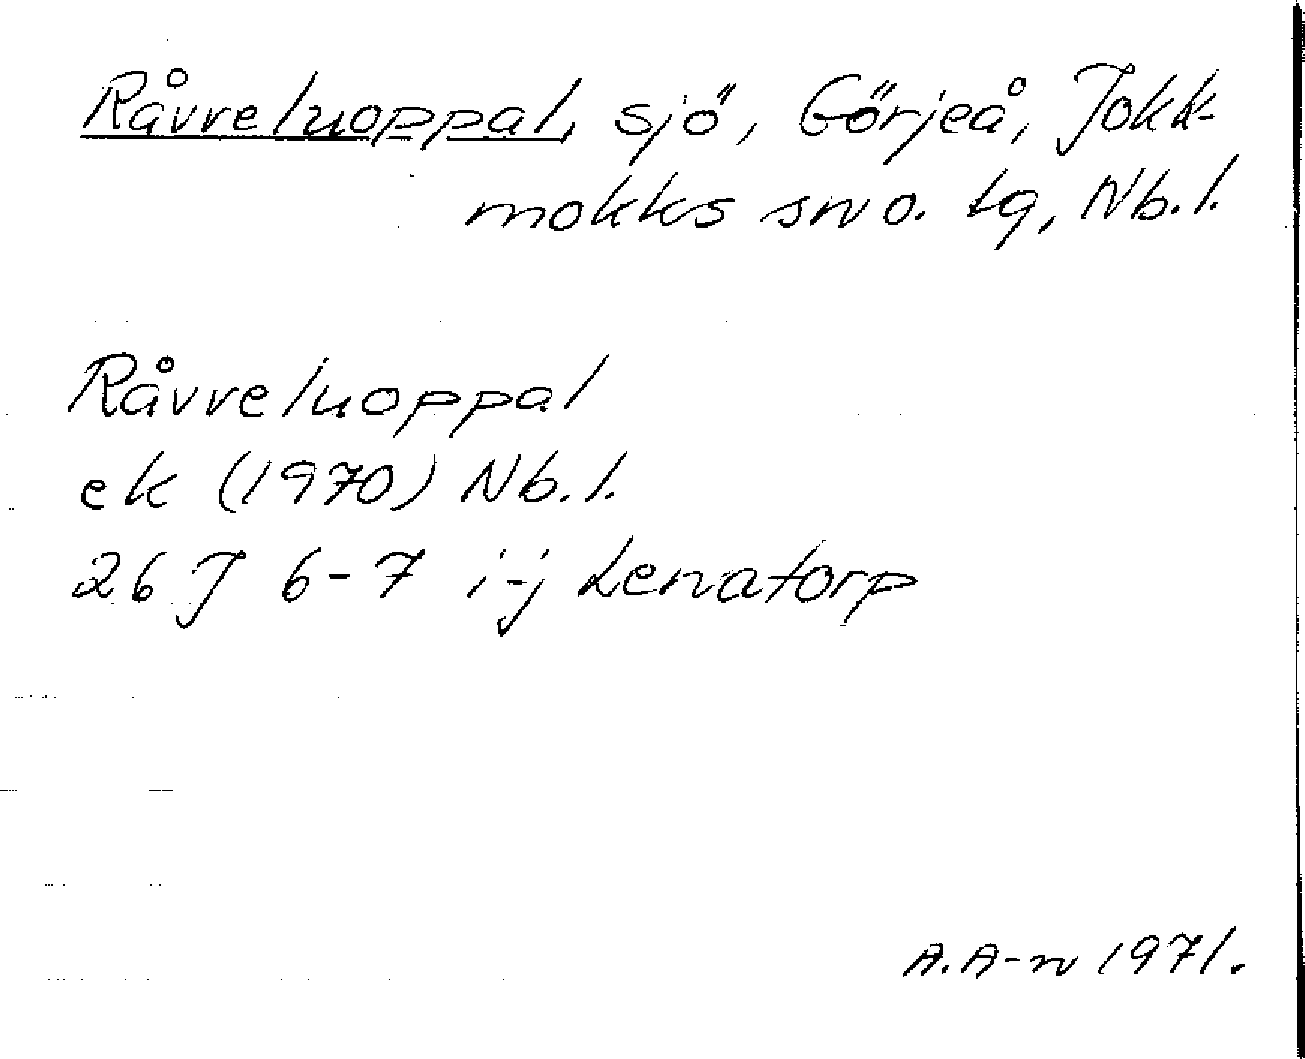 Råvreluoppal, sjö, Görjeå, Jokk-
mokks sn o. tg, Nb.l.
Råvreluoppal
ek (1970) Nb.l.
26 J 6-7 i-j Lenatorp
A.A-n 1971.